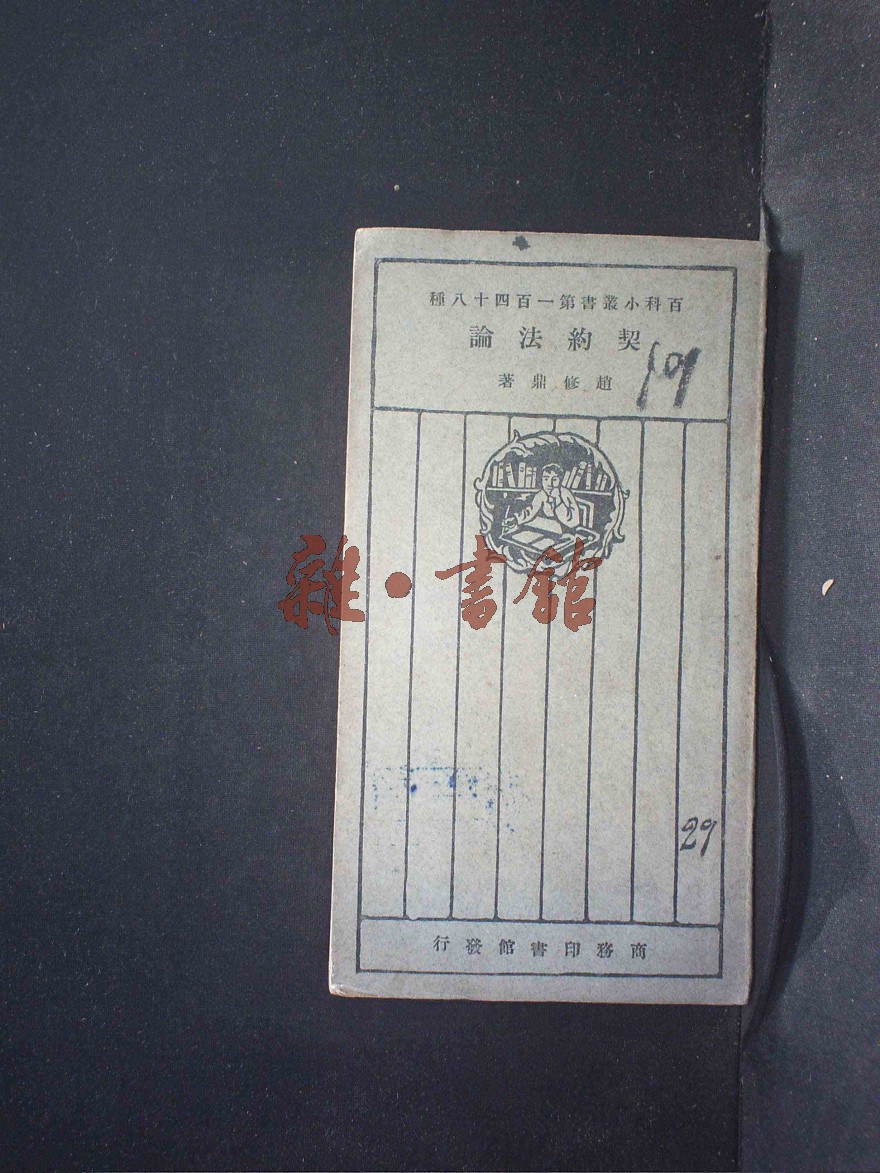 百科小叢書第一百四十八種
契約法論
趙修鼎著
雜·書館
29
商務印書館發行